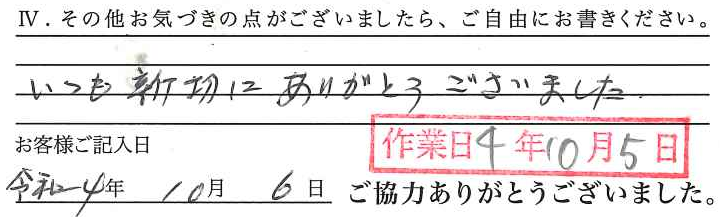 Ⅳ．その他お気づきの点がございましたら、ご自由にお書きください。
いつも親切にありがとうございました。
お客様ご記入日
作業日4年10月5日
令和4年10月6日
ご協力ありがとうございました。